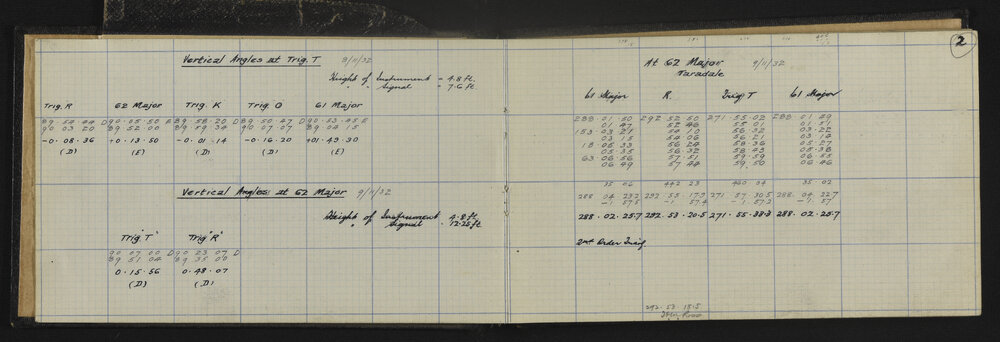 Vertical Angles at Trig. T 8/11/32
Height of Instrument = 4.8 ft.
" " Signal = 7.6 ft.
Trig. R 62 Major Trig. K Trig. O 61 Major
89 54 44 D 90 05 50 E 89 58 20 D 89 50 47 D 90 53 45 E
90 03 20 89 52 00 89 59 34 90 07 07 89 04 15
-0.08.36 +0.13.50 -0.01.14 -0.16.20 +01.49.30
(D) (E) (D) (D) (E)
Vertical Angles at 62 Major 9/11/32
Height of Instrument 4.8 ft.
" Signal 12.25 ft
Trig "T" Trig "R"
90 07 00 D 90 23 07 D
89 51 04 89 35 00
0.15.56 0.48.07
(D) (D)
2
At 62 Major 9/11/32
Taradale
61 Major R. Trig T 61 Major
288.01.50 292 52 50 271.55.02 288.01.49
01 47 52 46 55 01 01 51
153.03 21 54 10 56 32 03 22
03 15 54 06 56 21 03 14
18 05 33 56 24 58 36 05 27
05 35 56 32 58 43 05 38
63.06 56 57.51 59.59 06 55
06 49 57 44 59.50 06 46
35 06 442 23 460 04 35.02
288 04 23.2 292.55 17.9 271 57.30.5 288.04 22.7
-1 57.5 -1 57.4 -1 57.2 -1.57
288.02.25.7 292.53.20.5 271.55.33.3 288.02.25.7
2nd Order Trig
292.53.18.5